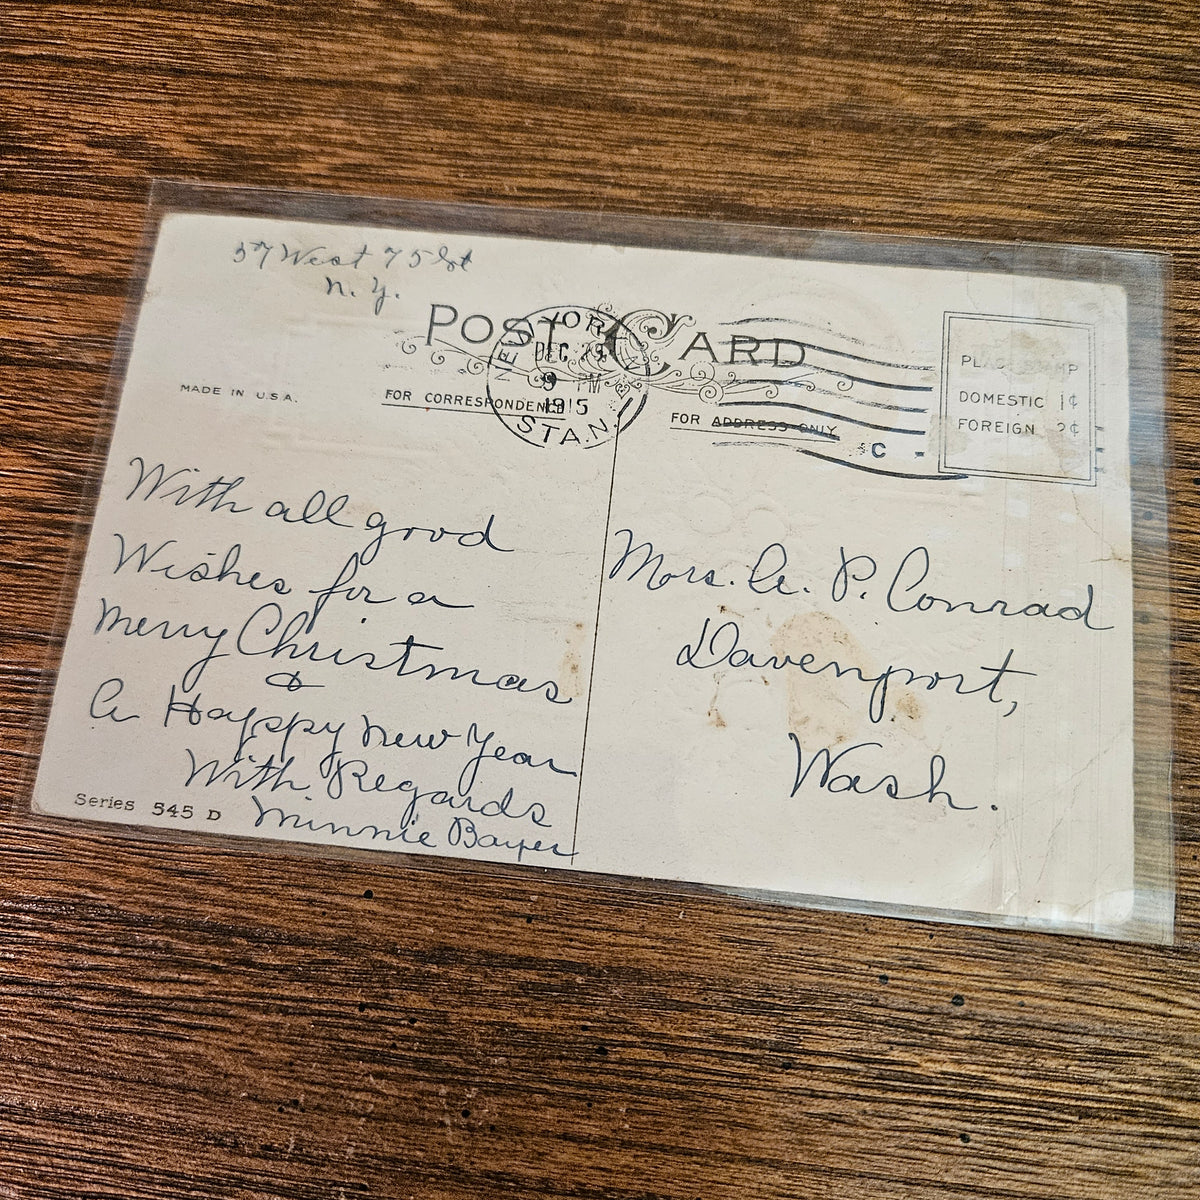 37 West 75 St
N. Y.
POST CARD
NEW YORK
DEC 29
9 PM
1915
STA. N.
MADE IN U.S.A.
FOR CORRESPONDENCE
FOR ADDRESS ONLY
C
PLACE STAMP
DOMESTIC 1¢
FOREIGN 2¢
With all good
Wishes for a
Merry Christmas
&
A Happy New Year
With Regards
Minnie Bayer
Series 545 D
Mrs. A. P. Conrad
Davenport,
Wash.